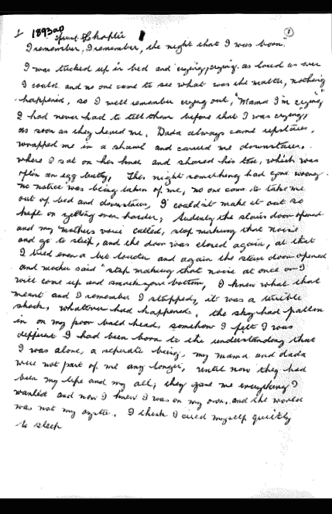 1893 a0
①
Spirit of Chaplin 1
I remember, I remember, the night that I was born.
I was tucked up in bed and crying, crying, as loud as ever
I could, and no one came to see what was the matter, nothing
happened, so I well remember crying out, "Mama I'm crying,"
I had never had to tell them before that I was crying,
as soon as they heard me, Dada always came upstairs,
wrapped me in a shawl and carried me downstairs,
where I sat on his knee and shared his tea, which was
often an egg butty, this night something had gone wrong.
no notice was being taken of me, no one came to take me
out of bed and downstairs, I couldn't make it out so
kept on yelling even harder, Suddenly the stairs door opened
and my mothers voice called, stop making that noise
and go to sleep, and the door was closed again, at that
I cried even a bit louder and again the stairs door opened
and mother said "stop making that noise at once or I
will come up and smack your bottom, I knew what that
meant and I remember I stopped, it was a terrible
shock, whatever had happened, the sky had fallen
in on my poor bald head, somehow I felt I was
different I had been born to the understanding that
I was alone, a seperate being. my mama and dada
were not part of me any longer, until now they had
been my life and my all, they gave me everything I
wanted and now I knew I was on my own, and the world
was not my oyster, I think I cried myself quietly
to sleep